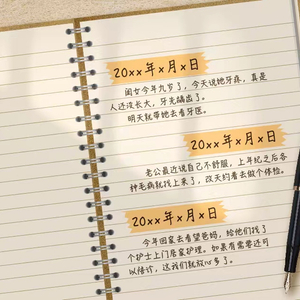 20xx年x月x日
闺女今年九岁了，今天说她牙疼，真是
人还没长大，牙先蛀齿了。
明天就带她去看牙医。
20xx年x月x日
老公最近说自己不舒服，上年纪之后各
种毛病就找上来了，改天约着去做个体检。
20xx年x月x日
今年回家去看望爸妈，给他们找了
个护士上门居家护理。如果有需要还可
以陪讨，这我们就放心多了。